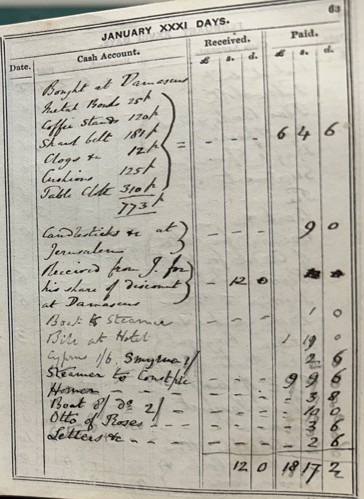 63
JANUARY XXXI DAYS.
Date. Cash Account. Received. Paid.
£ s. d. £ s. d.
Bought at Damascus
Metal Bowls 25p
Coffee Stands 120p
Shawl belt 181p = - - - 6 4 6
Clogs &c 12p
Cushions 125p
Table Cloth 310p
773p
Candlesticks &c at - - - 9 0
Jerusalem
Received from J. for
his share of discount - 12 0
at Damascus
Boat to Steamer - - 1 0
Bill at Hotel 1 19 0
Cyprus 1/6 Smyrna 1/ - - - 2 6
Steamer to Constple - - - 9 9 6
Homer - - - - 3 8
Boat 8/ do 2/ - - - - 10 0
Otto of Roses - - - - 3 6
Letters &c - - - - - 2 6
12 0 18 17 2